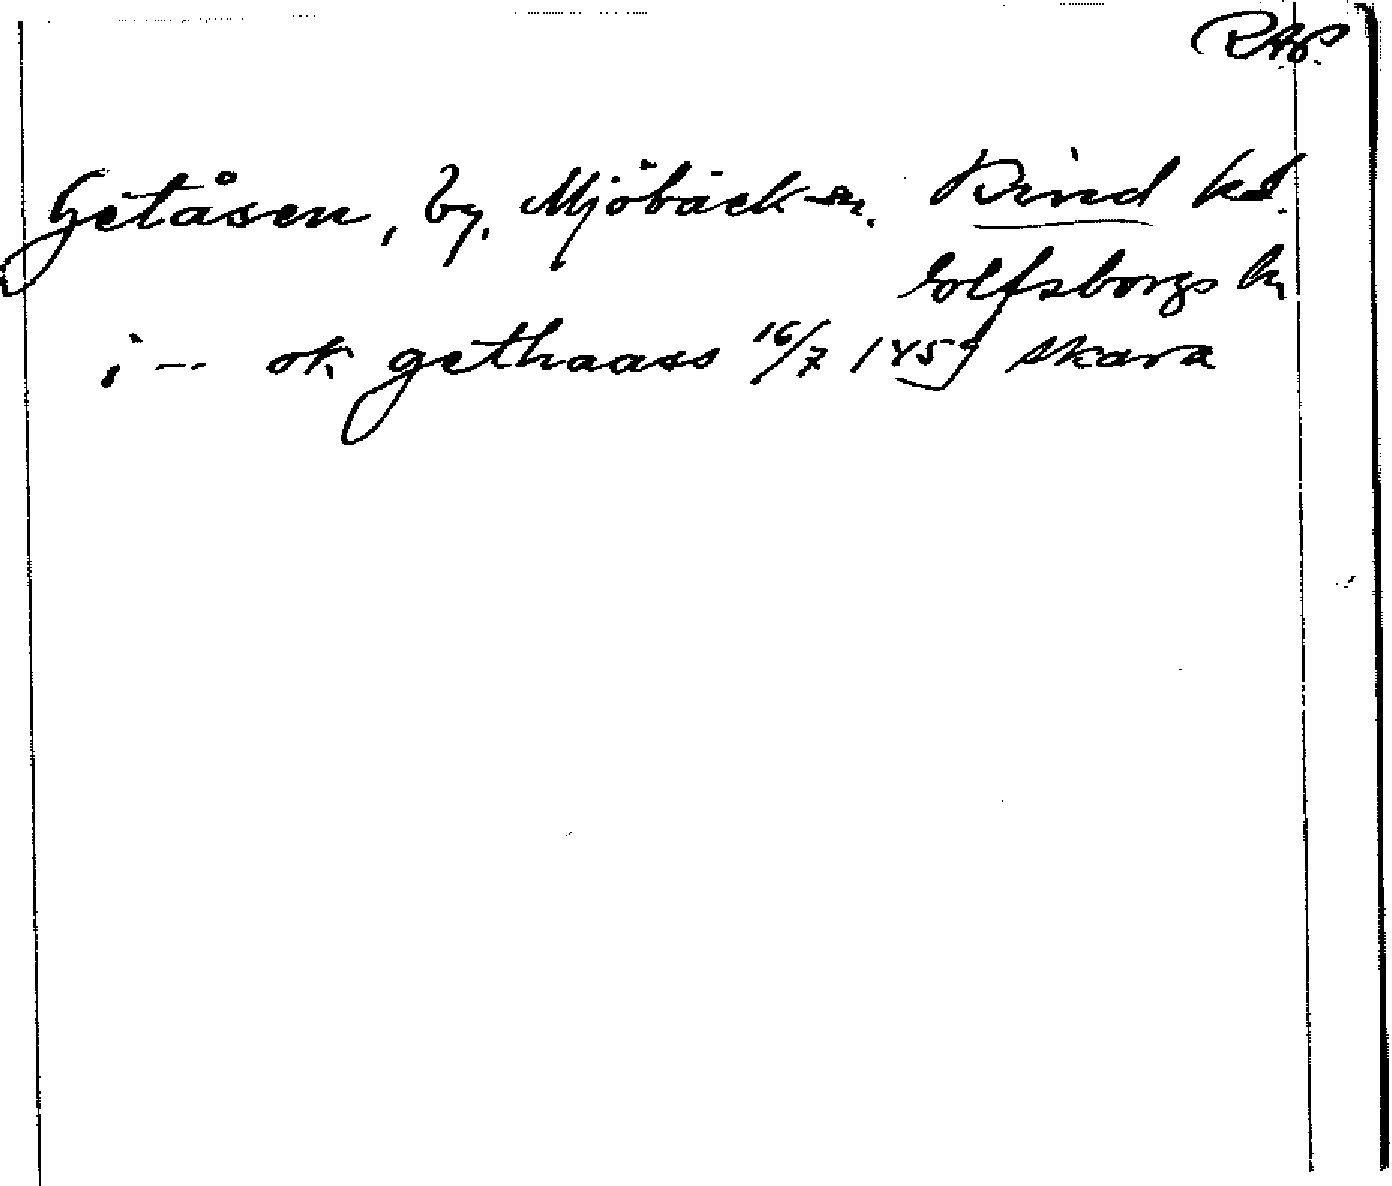 RAp
Getåsen, by, Mjöbäck sn. Kind hd.
Elfsborgs ln
i -- ok gethaass 16/7 1459 Skara